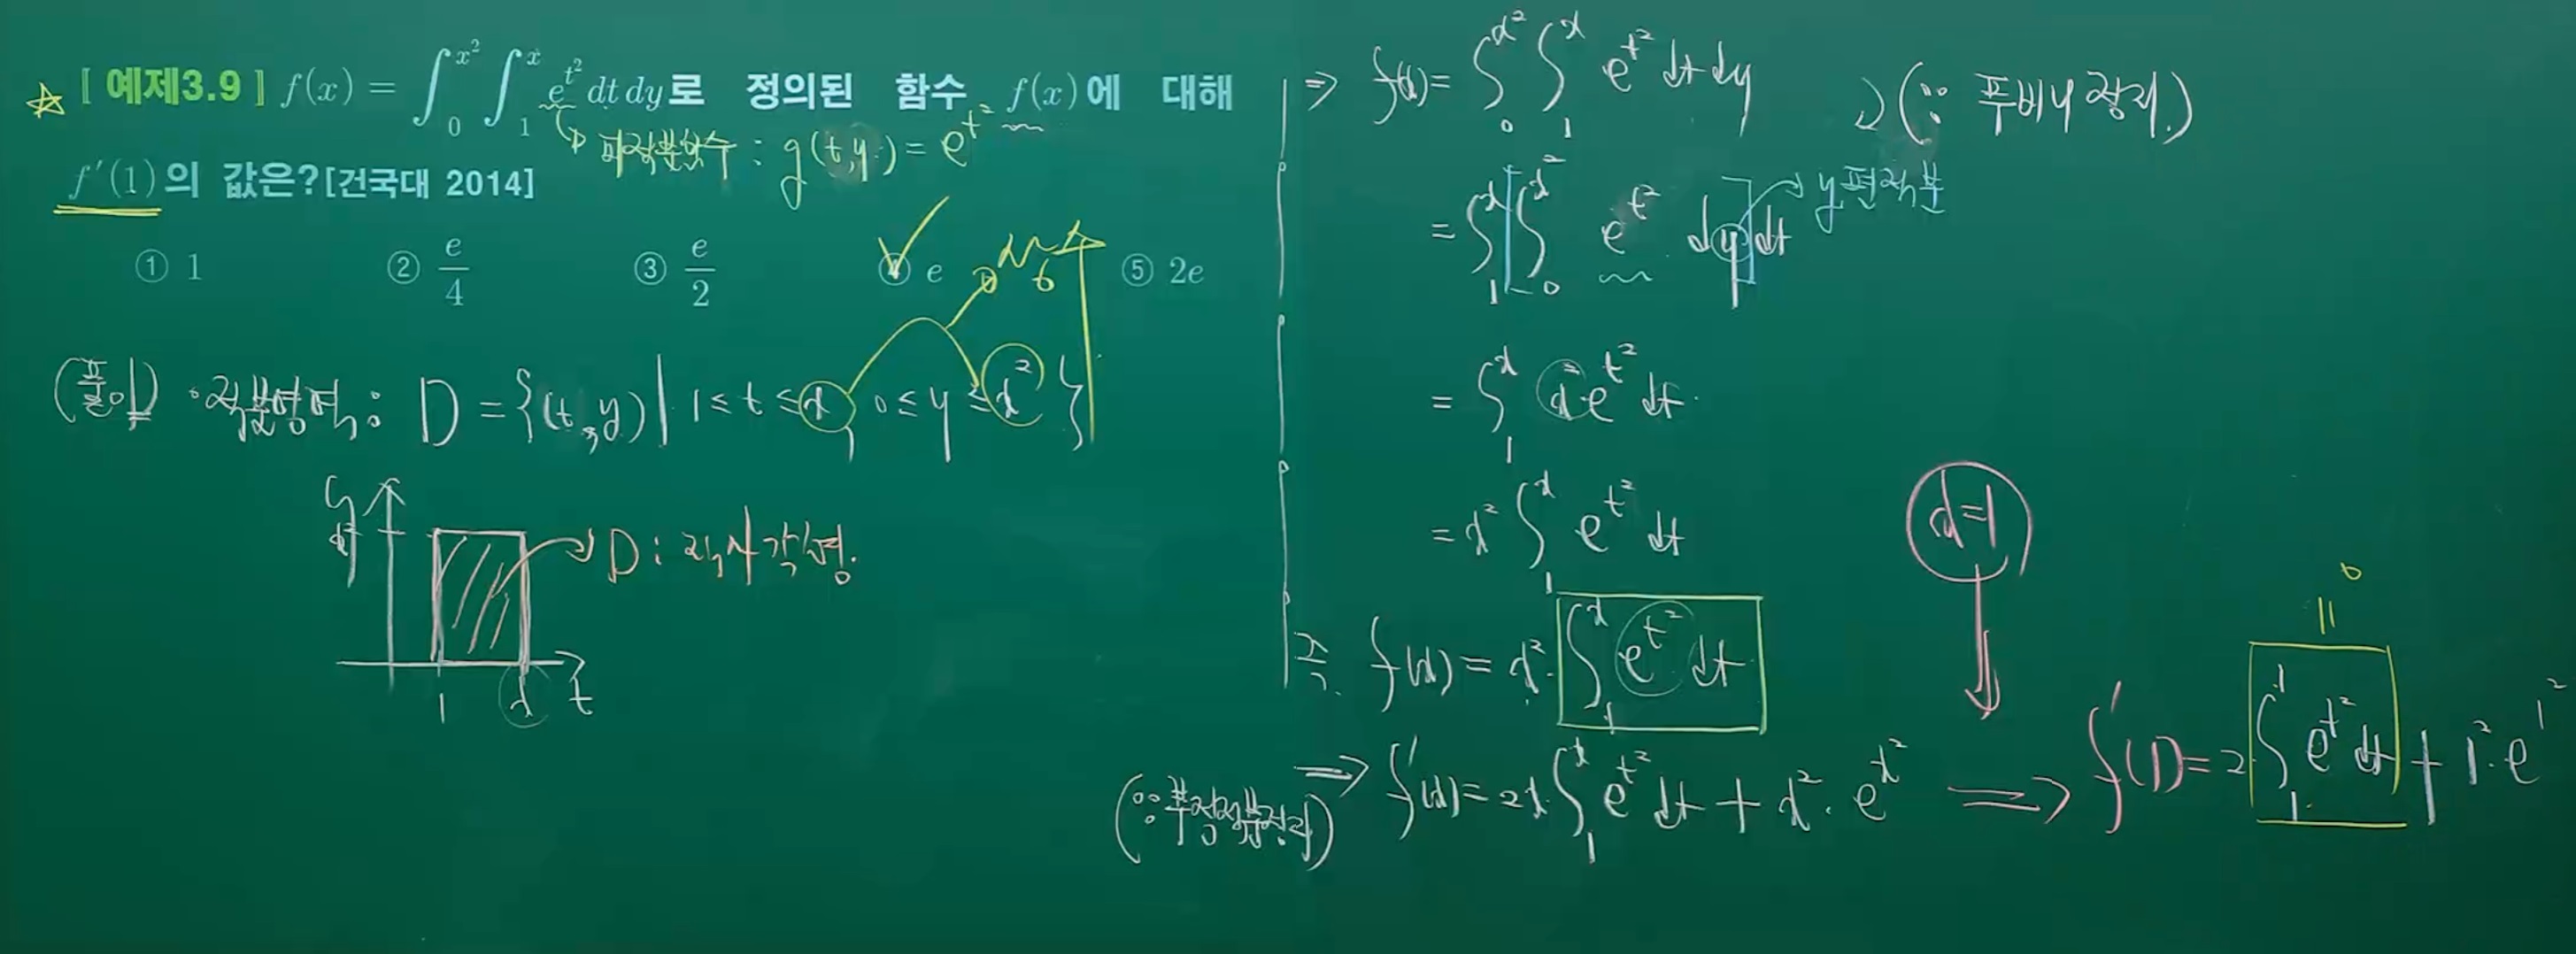 ☆ [ 예제3.9 ] f(x) = ∫_0^{x^2} ∫_1^x e^{t^2} dt dy로 정의된 함수 f(x)에 대해
피적분함수 : g(t,y) = e^{t^2}
f′(1)의 값은?[건국대 2014]
① 1 ② e/4 ③ e/2 ④ e ⑤ 2e
(풀이) · 적분영역 : D = {(t,y) | 1 ≤ t ≤ x, 0 ≤ y ≤ x^2}
y
x^2
D : 직사각형.
1 x t
⇒ f(x) = ∫_0^{x^2} ∫_1^x e^{t^2} dt dy (∵ 푸비니 정리.)
= ∫_1^x ∫_0^{x^2} e^{t^2} dy dt y편적분
= ∫_1^x x^2 e^{t^2} dt
= x^2 ∫_1^x e^{t^2} dt
즉. f(x) = x^2 · ∫_1^x e^{t^2} dt
(∵ 부정적분정리) ⇒ f′(x) = 2x · ∫_1^x e^{t^2} dt + x^2 · e^{x^2}
x=1
⇒ f′(1) = 2 ∫_1^1 e^{t^2} dt + 1^2 · e^{1^2}
= 0